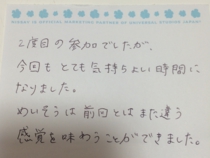 OFFICIAL MARKETING PARTNER OF UNIVERSAL STUDIOS JAPAN
2度目の参加でしたが、
今回も とても気持ちよい時間に
なりました。
めいそうは前回とはまた違う
感覚を味わうことができました。